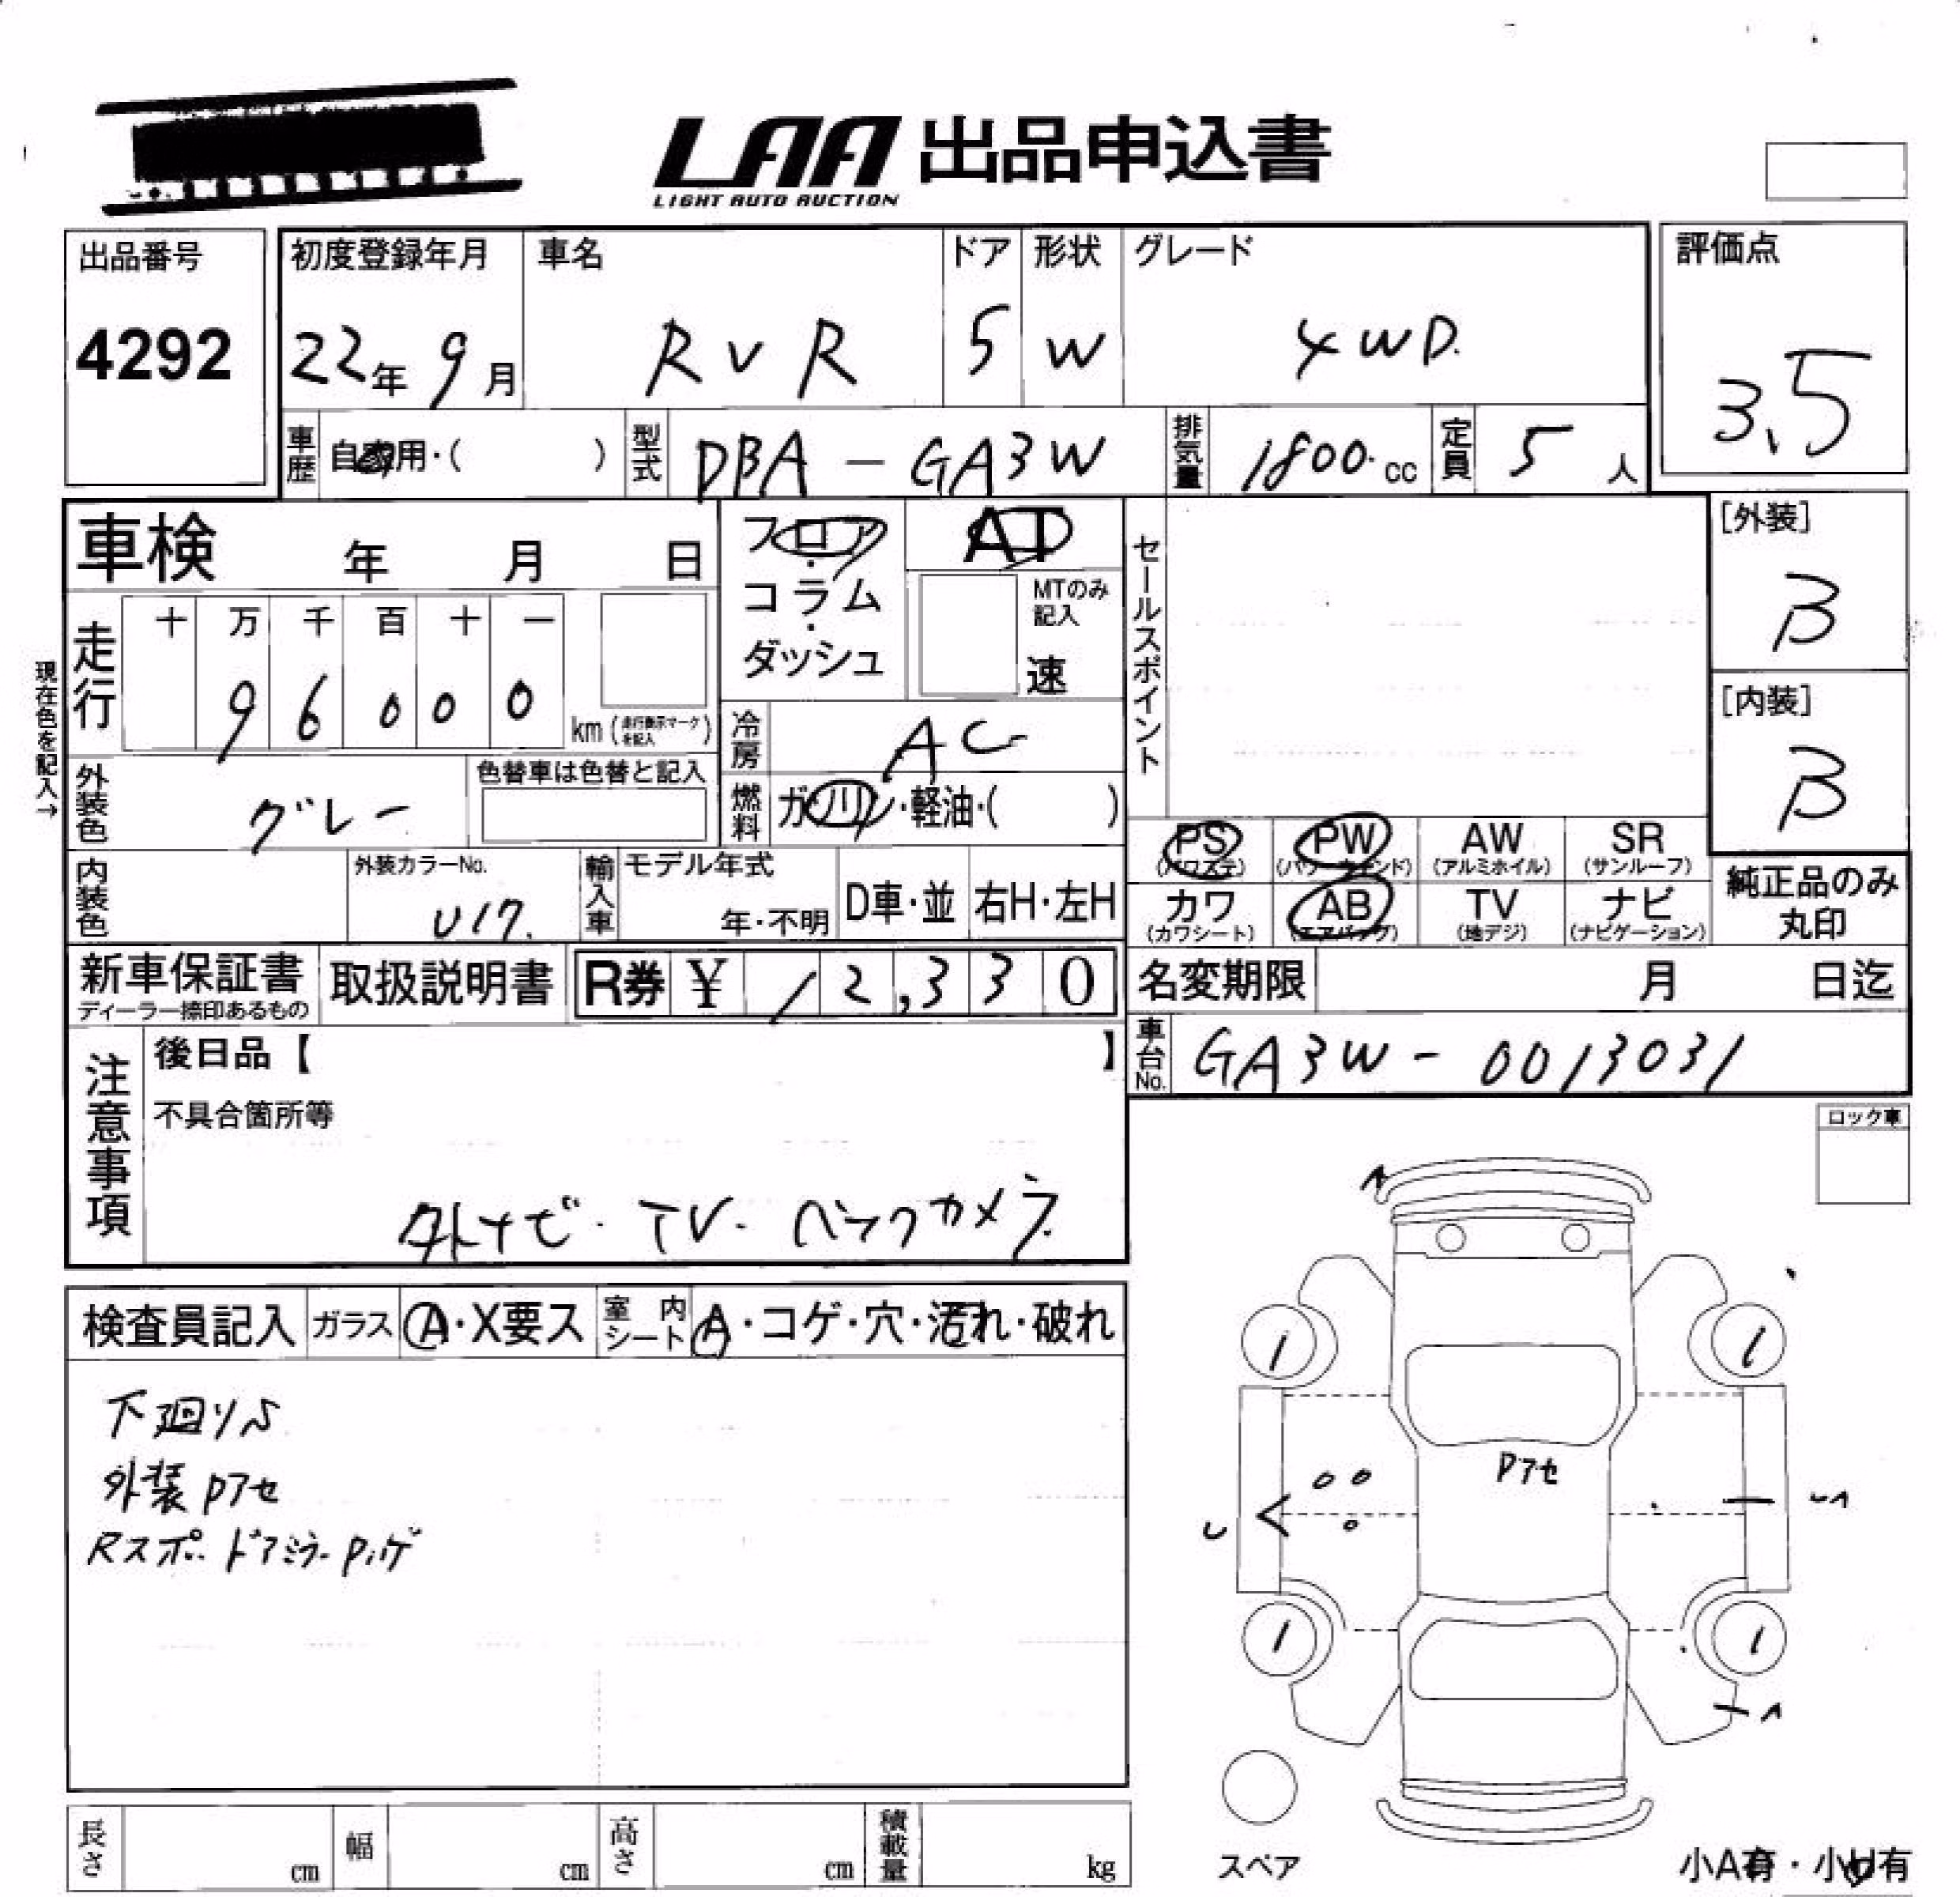 LAA 出品申込書
LIGHT AUTO AUCTION
出品番号
4292
初度登録年月
22年 9月
車名
RVR
ドア
5
形状
W
グレード
4WD.
評価点
3.5
車歴
自家用・( )
型式
DBA-GA3W
排気量
1800.cc
定員
5人
車検 年 月 日
フロア・コラム・ダッシュ
AT
MTのみ記入
速
セールスポイント
[外装]
B
[内装]
B
現在色を記入→
走行
十 万 千 百 十 一
9 6 0 0 0
km(走行表示マークを記入)
冷房
AC
外装色
グレー
色替車は色替と記入
燃料
ガソリン・軽油・( )
PS
(パワステ)
PW
(パワーウィンド)
AW
(アルミホイル)
SR
(サンルーフ)
カワ
(カワシート)
AB
(エアバッグ)
TV
(地デジ)
ナビ
(ナビゲーション)
純正品のみ
丸印
内装色
外装カラーNo.
U17.
輸入車
モデル年式
年・不明
D車・並
右H・左H
新車保証書
ディーラー捺印あるもの
取扱説明書
R券 ¥ 12,330
名変期限 月 日迄
車台No.
GA3W-0013031
注意事項
後日品【 】
不具合箇所等
外ナビ・TV・バックカメラ
ロック車
検査員記入
ガラス
A・X要ス
室内シート
A・コゲ・穴・汚れ・破れ
下廻りS
外装Pアセ
Rスポ. ドアミラーPハゲ
Pアセ
スペア
長さ cm
幅 cm
高さ cm
積載量 kg
小A有・小U有